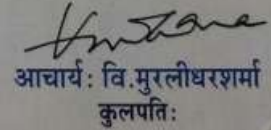 आचार्य: वि.मुरलीधरशर्मा
कुलपति: